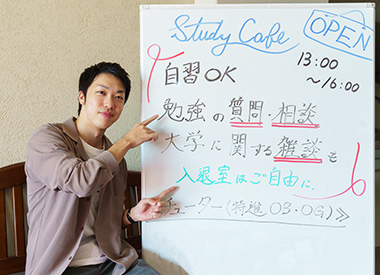 Study Cafe
OPEN
13:00
～16:00
自習OK
勉強の質問・相談
大学に関する雑談も
入退室はご自由に。
チューター(特進OB・OG)≫